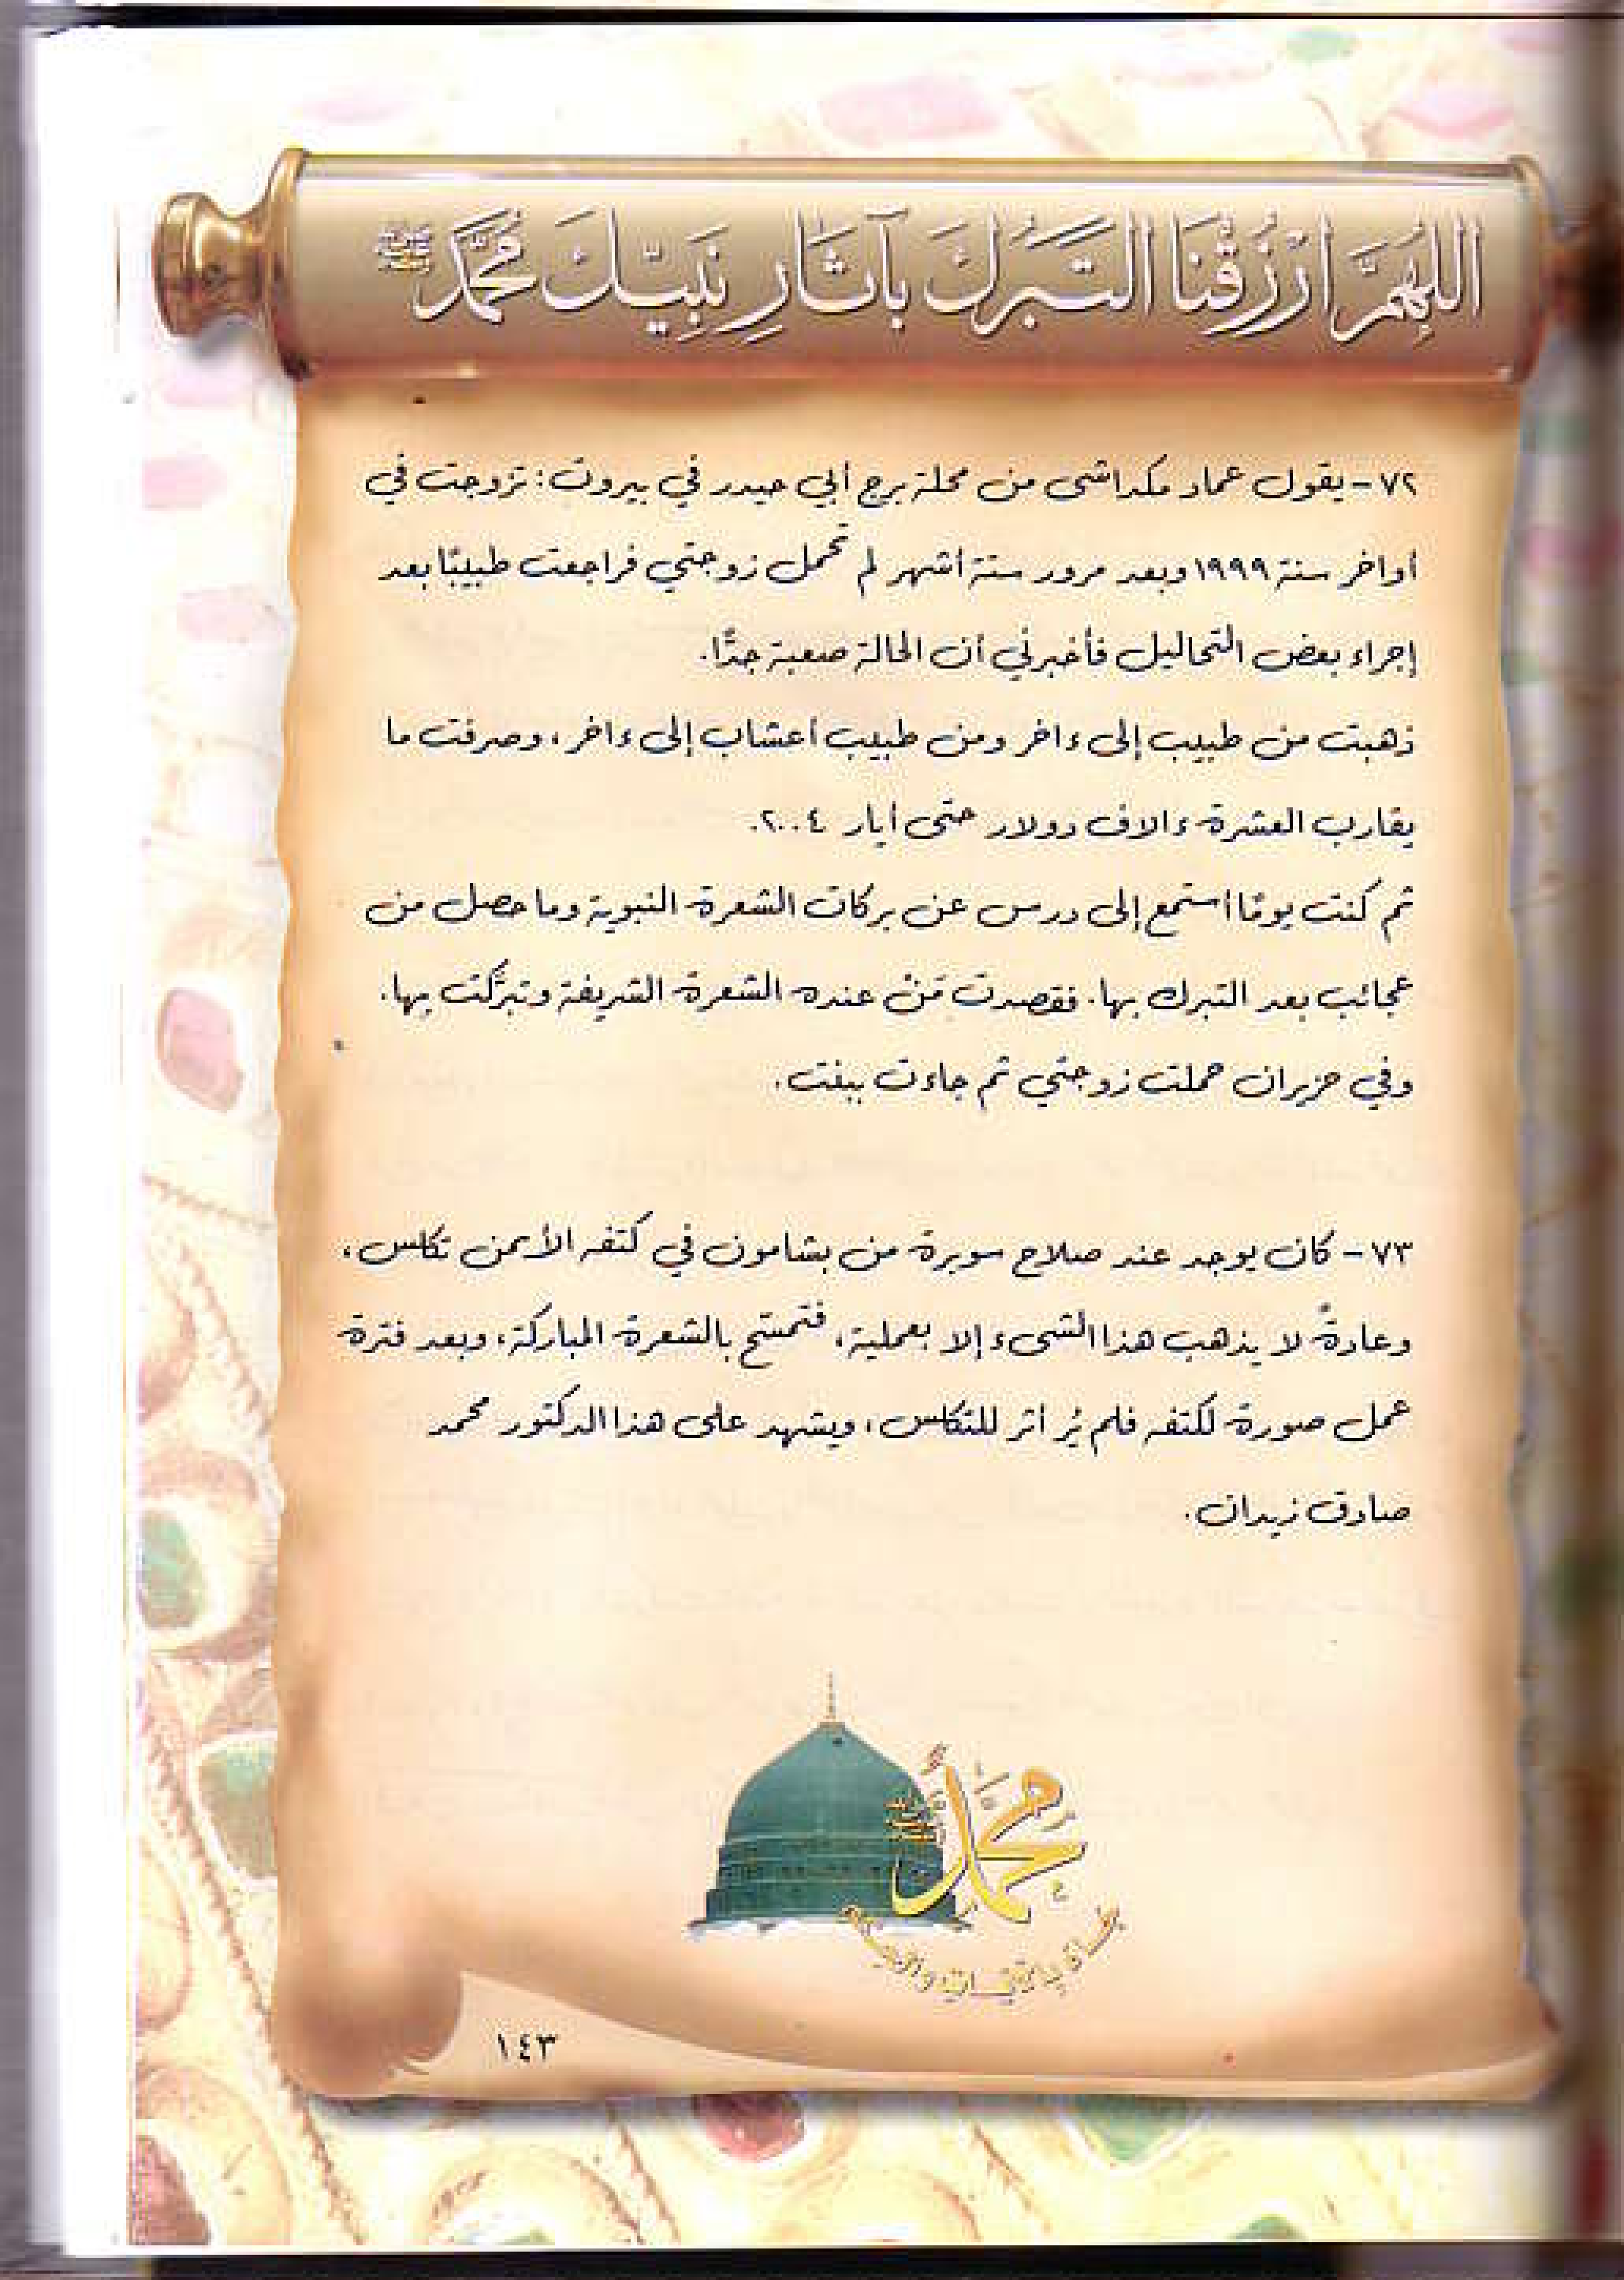 اللَّهُمَّ ارْزُقْنَا التَّبَرُّكَ بِآثَارِ نَبِيِّكَ مُحَمَّدٍ ﷺ
٧٢- يقول عماد مكداشى من محلة برج أبي حيدر في بيروت: تزوجت في
أواخر سنة ١٩٩٩ وبعد مرور ستة أشهر لم تحمل زوجتي فراجعت طبيبًا بعد
إجراء بعض التحاليل فأخبرني أن الحالة صعبة جدًّا.
ذهبت من طبيب إلى ءاخر ومن طبيب أعشاب إلى ءاخر، وصرفت ما
يقارب العشرة ءالاف دولار حتى أيار ٢٠٠٤.
ثم كنت يومًا أستمع إلى درس عن بركات الشعرة النبوية وما حصل من
عجائب بعد التبرك بها. فقصدت مَنْ عنده الشعرة الشريفة وتبرَّكت بها.
وفي حزيران حملت زوجتي ثم جاءت ببنت.
٧٣- كان يوجد عند صلاح سوبرة من بشامون في كتفه الأيمن تكلس،
وعادةً لا يذهب هذا الشىء إلا بعملية، فتمسَّح بالشعرة المباركة، وبعد فترة
عمل صورة لكتفه فلم يُر أثر للتكلس، ويشهد على هذا الدكتور محمد
صادق زيدان.
محمد
١٤٣